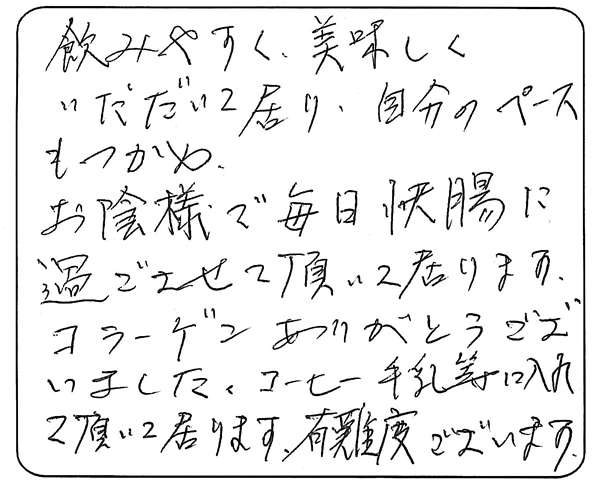 飲みやすく、美味しく
いただいて居り、自分のペース
もつかめ、
お陰様で毎日快腸に
過ごさせて頂いて居ります。
コラーゲンありがとうござ
いました。コーヒー牛乳等に入れ
て頂いて居ります。有難度ございます。